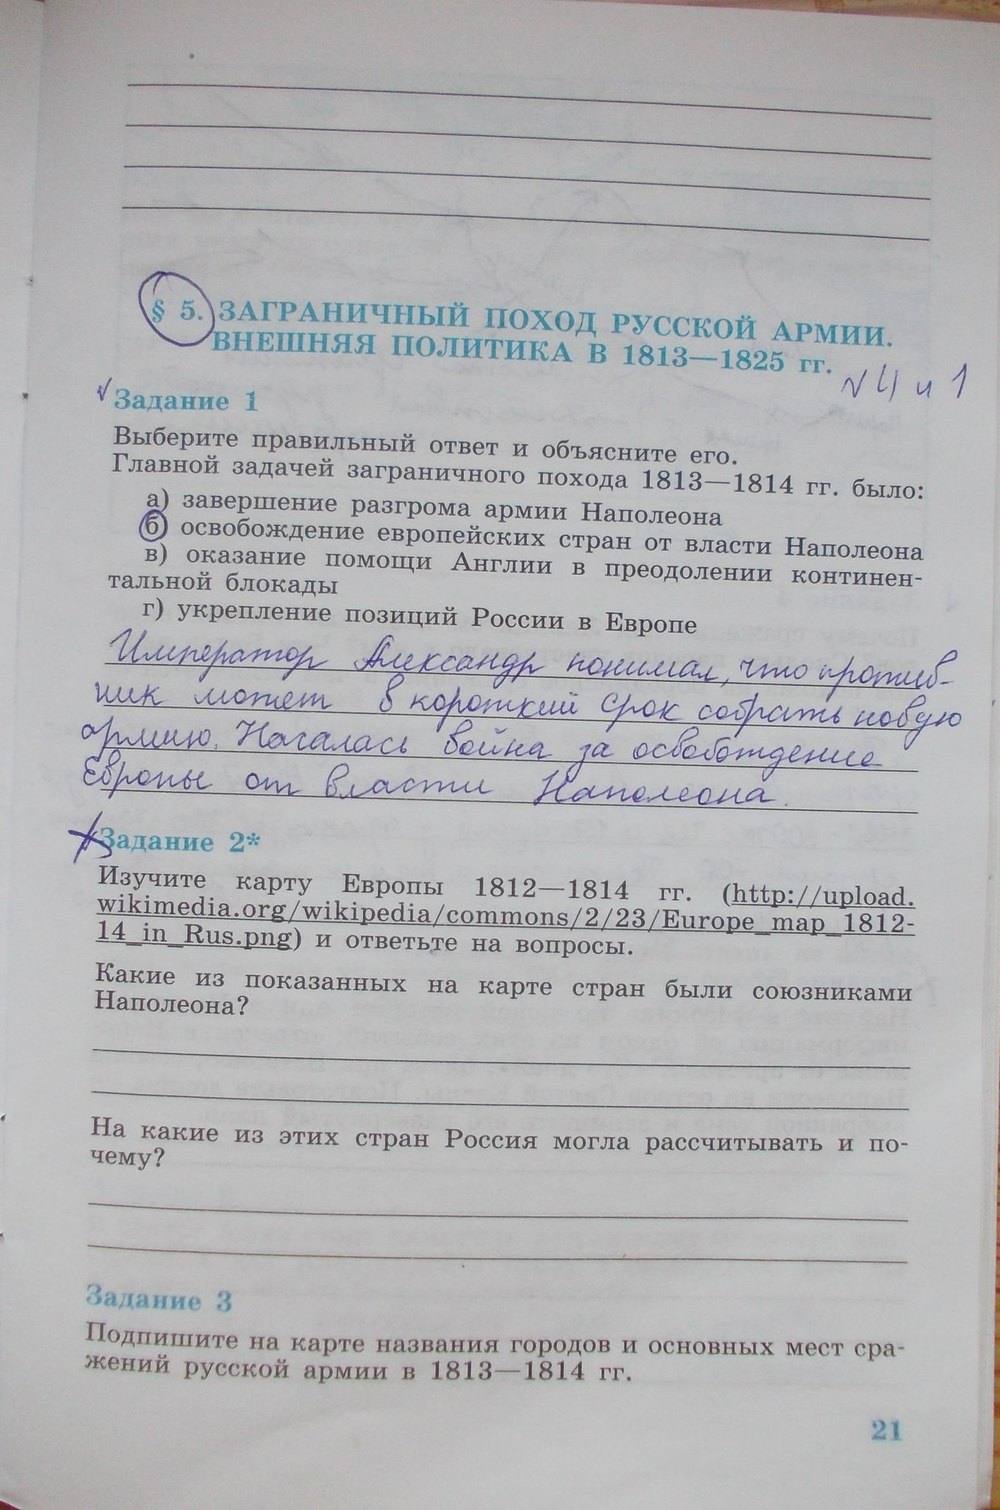 § 5. ЗАГРАНИЧНЫЙ ПОХОД РУССКОЙ АРМИИ.
ВНЕШНЯЯ ПОЛИТИКА В 1813—1825 гг.
√ 4 и 1
√ Задание 1
Выберите правильный ответ и объясните его.
Главной задачей заграничного похода 1813—1814 гг. было:
а) завершение разгрома армии Наполеона
б) освобождение европейских стран от власти Наполеона
в) оказание помощи Англии в преодолении континен-
тальной блокады
г) укрепление позиций России в Европе
Император Александр понимал, что против-
ник может в короткий срок собрать новую
армию. Началась война за освобождение
Европы от власти Наполеона.
Задание 2*
Изучите карту Европы 1812—1814 гг. (http://upload.
wikimedia.org/wikipedia/commons/2/23/Europe_map_1812-
14_in_Rus.png) и ответьте на вопросы.
Какие из показанных на карте стран были союзниками
Наполеона?
На какие из этих стран Россия могла рассчитывать и по-
чему?
Задание 3
Подпишите на карте названия городов и основных мест сра-
жений русской армии в 1813—1814 гг.
21